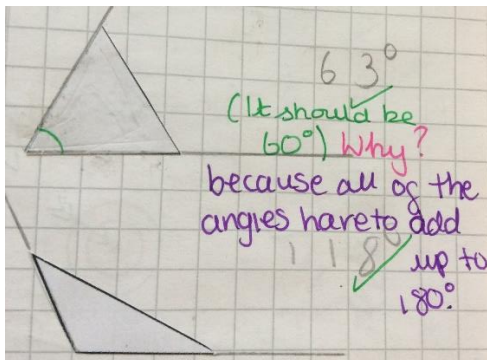 63°
(It should be
60°) Why?
because all of the
angles have to add
118° up to
180°.